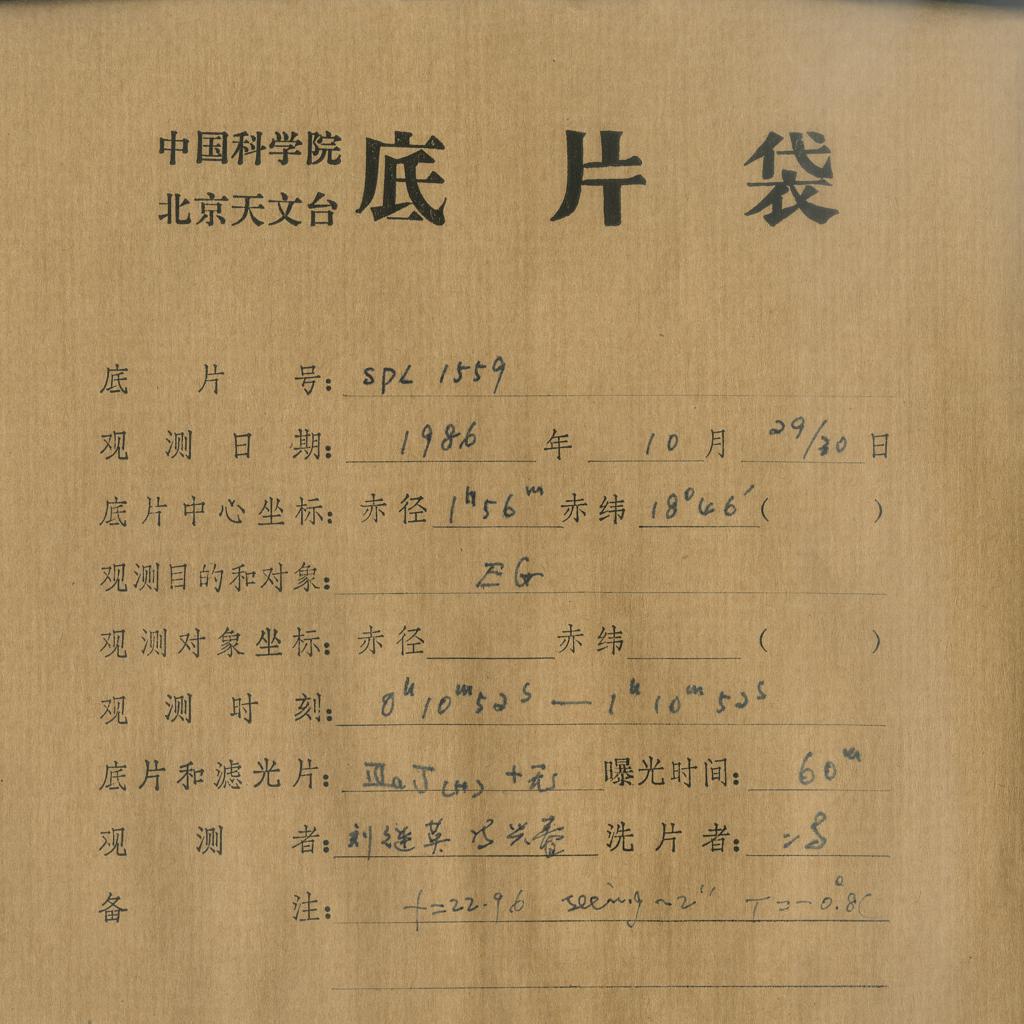 中国科学院
北京天文台
底片袋
底片号：SPL 1559
观测日期：1986年10月29/30日
底片中心坐标：赤径1ʰ56ᵐ赤纬18°46′（ ）
观测目的和对象：EG
观测对象坐标：赤径 赤纬 （ ）
观测时刻：0ʰ10ᵐ52ˢ — 1ʰ10ᵐ52ˢ
底片和滤光片：ⅢaJ(H) +无 曝光时间：60ᵐ
观测者：刘继英 洗片者：
备注：f=22.96 seeing ~2″ T=-0.8°C